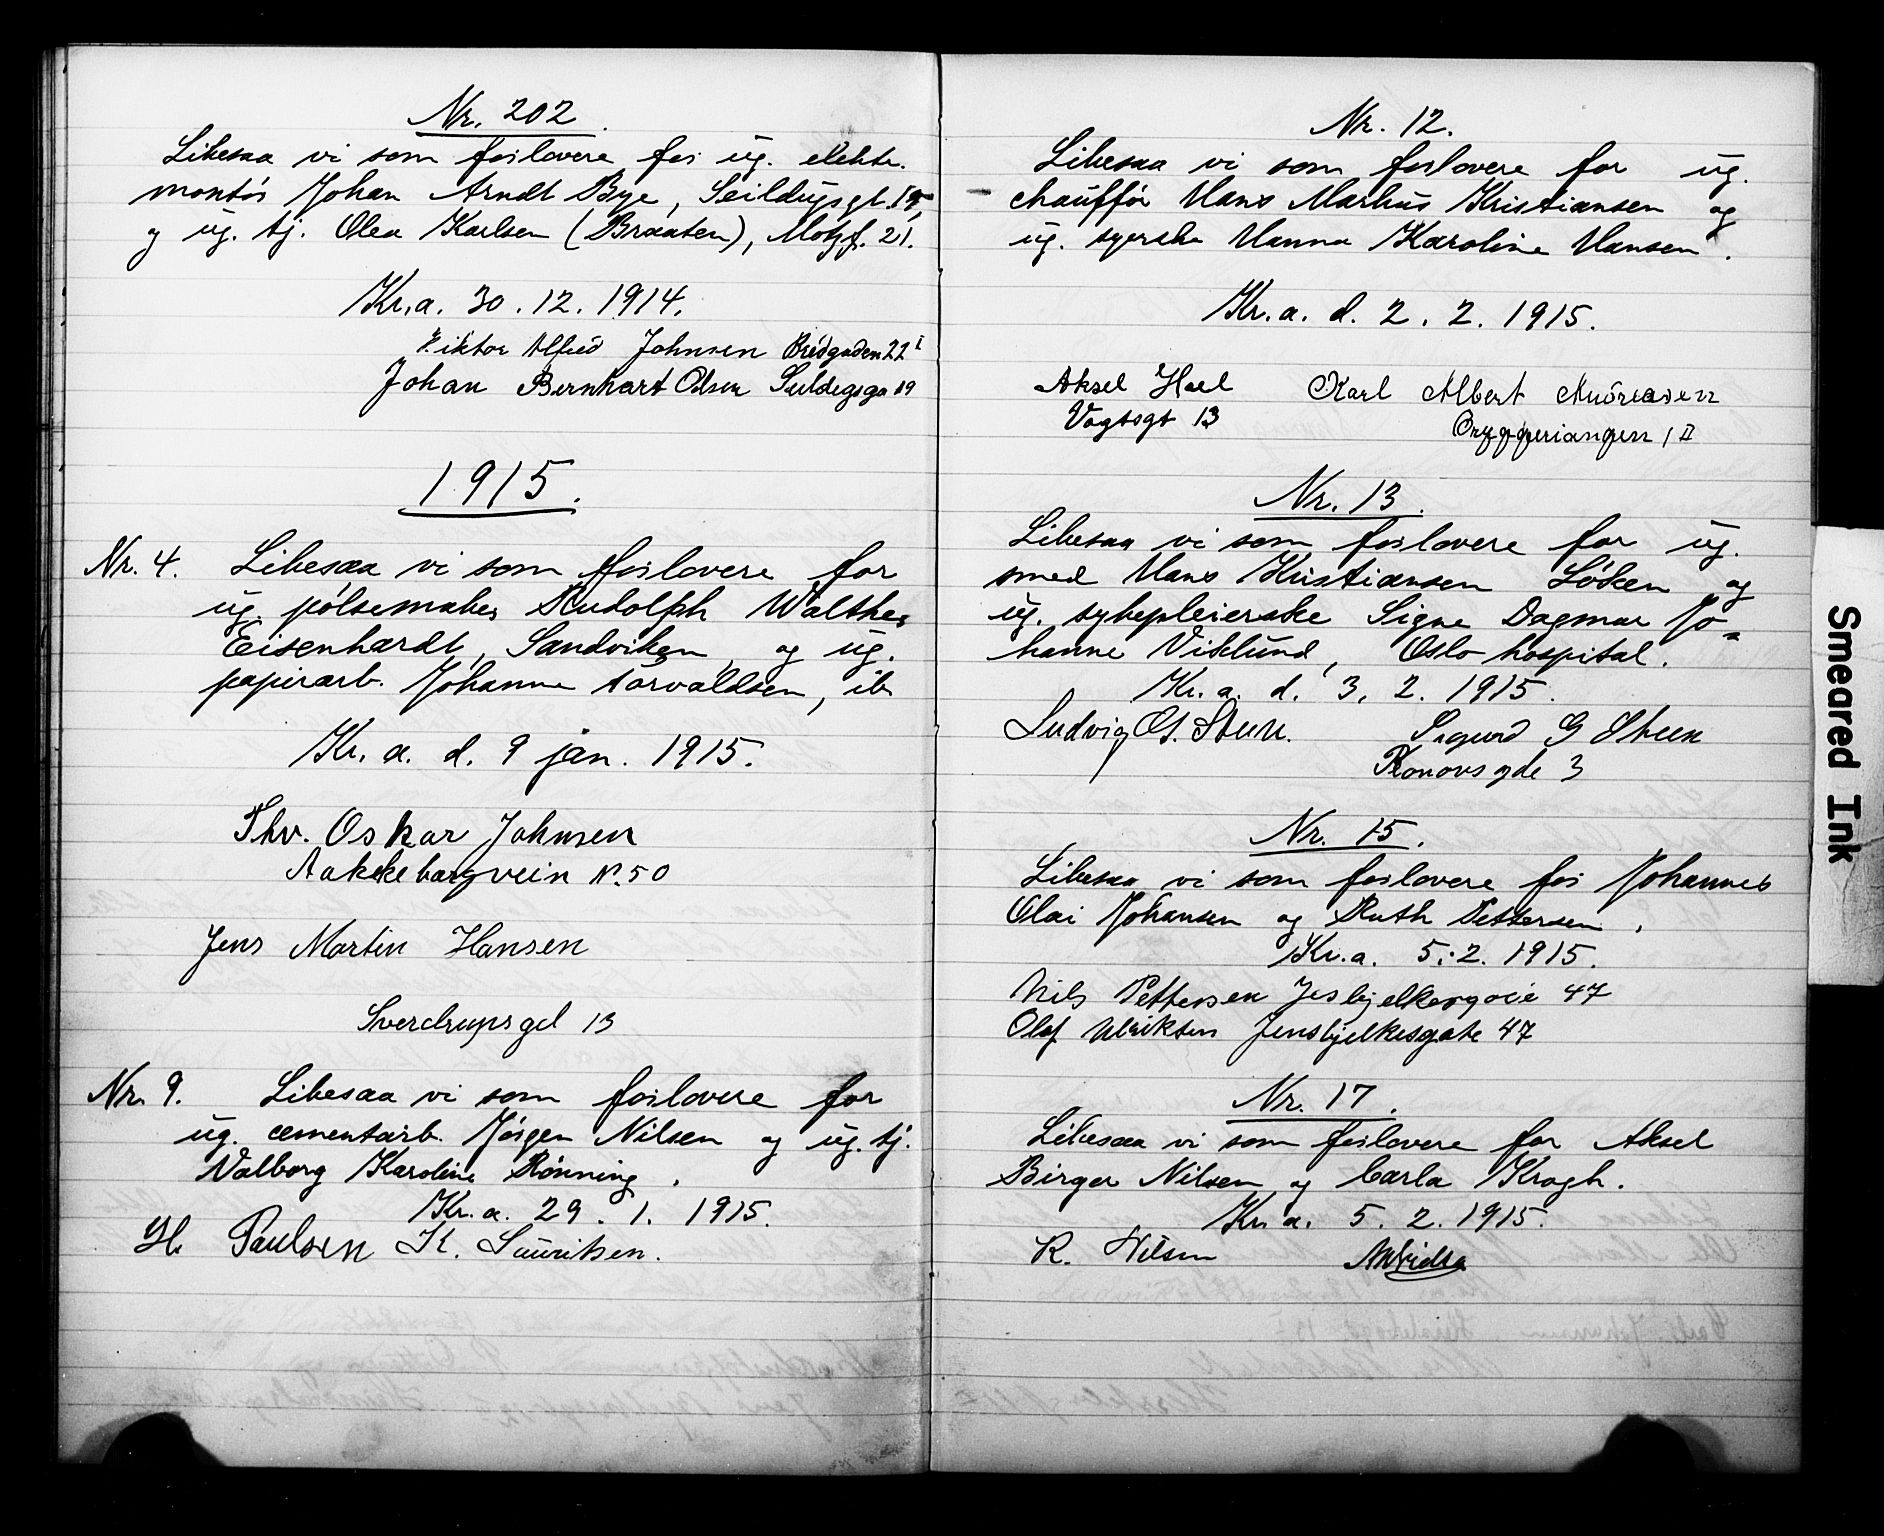 Nr. 202.
Likesaa vi som forlovere for ug. elektr.
montör Johan Arndt Bye, Seildugsgt. 19,
og ug. tj. Olea Karlsen (Braaten), Motzf. 21.
Kr.a. 30.12.1914.
Viktor Alfred Johnsen Bredgaden 22 I
Johan Bernhart Olsen 19
1915.
Nr. 4. Likesaa vi som forlovere for
ug. pölsemaker Rudolph Walther
Eisenhardt, Sandviken, og ug.
papirarb. Johanne Torvaldsen, ib
Kr.a. d. 9 jan. 1915.
Thv. Oskar Johnsen
Aakebergvein N. 50
Jens Martin Hansen
Sverdrupsgd 13
Nr. 9. Likesaa vi som forlovere for
ug. cementarb. Jörgen Nilsen og ug. tj.
Valborg Karoline Rönning.
Kr.a. 29.1.1915.
H. Paulsen K. Lauritsen.
Nr. 12.
Likesaa vi som forlovere for ug.
chaufför Hans Markus Kristiansen og
ug. syerske Hanna Karoline Hansen.
Kr.a. d. 2.2.1915.
Aksel Hoel Karl Albert Andreasen
Vogtsgt 13 Bryggeriangen 1 II
Nr. 13.
Likesaa vi som forlovere for ug.
smed Hans Kristiansen Löken og
ug. sykepleierske Signe Dagmar Jo=
hanne Viklund, Oslo hospital.
Kr.a. d. 3.2.1915.
Ludvig O. Steen. Sigurd G Steen
3
Nr. 15.
Likesaa vi som forlovere for Johannes
Olai Johansen og Ruth Pettersen.
Kr.a. 5.2.1915.
Nils Pettersen 47
Olaf Ulriksen Jensbjelkesgate 47
Nr. 17.
Likesaa vi som forlovere for Aksel
Birger Nilsen og Carla Krogh.
Kr.a. 5.2.1915.
R. Nilsen
Smeared Ink